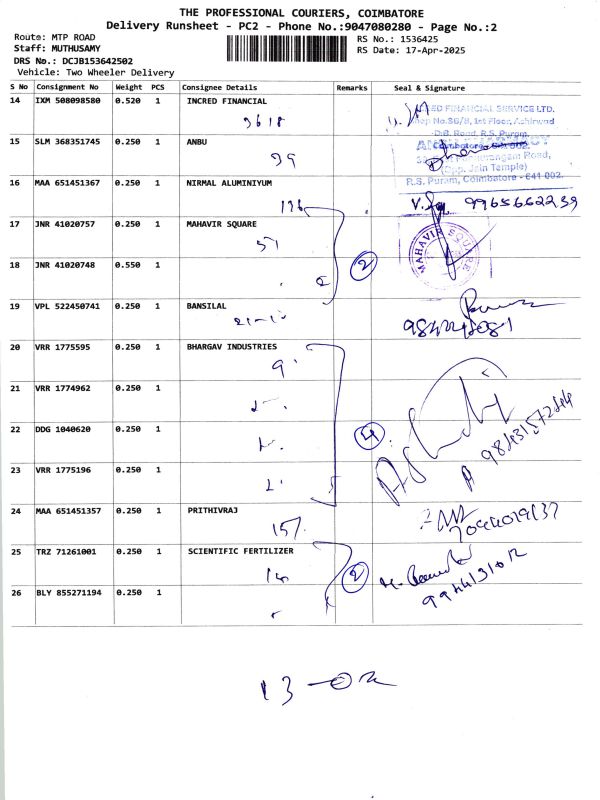 THE PROFESSIONAL COURIERS, COIMBATORE
Delivery Runsheet - PC2 - Phone No.:9047080280 - Page No.:2
Route: MTP ROAD
RS No.: 1536425
Staff: MUTHUSAMY
RS Date: 17-Apr-2025
DRS No.: DCJB153642502
Vehicle: Two Wheeler Delivery
S No Consignment No Weight PCS Consignee Details Remarks Seal & Signature
14 IXM 508098580 0.520 1 INCRED FINANCIAL
9618
FINANCIAL SERVICE LTD.
1st Floor,
D.B. Road, R.S. Puram,
15 SLM 368351745 0.250 1 ANBU
99
Coimbatore
Road,
(Opp. Jain Temple)
R.S. Puram, Coimbatore - 641 002.
16 MAA 651451367 0.250 1 NIRMAL ALUMINIYUM
17 JNR 41020757 0.250 1 MAHAVIR SQUARE
MAHAVIR SQUARE
18 JNR 41020748 0.550 1
2
19 VPL 522450741 0.250 1 BANSILAL
20 VRR 1775595 0.250 1 BHARGAV INDUSTRIES
9
21 VRR 1774962 0.250 1
22 DDG 1040620 0.250 1
4
23 VRR 1775196 0.250 1
24 MAA 651451357 0.250 1 PRITHIVRAJ
25 TRZ 71261001 0.250 1 SCIENTIFIC FERTILIZER
2
26 BLY 855271194 0.250 1
13